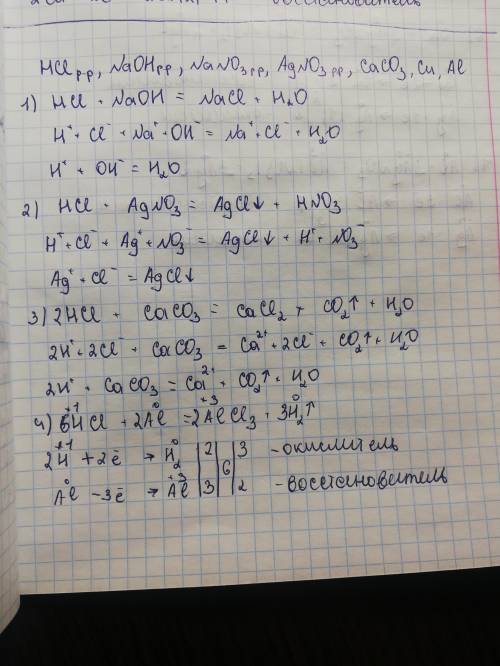 восстановитель
HCl р-р, NaOH р-р, NaNO₃ р-р, AgNO₃ р-р, CaCO₃, Cu, Al
1) HCl + NaOH = NaCl + H₂O
H⁺ + Cl⁻ + Na⁺ + OH⁻ = Na⁺ + Cl⁻ + H₂O
H⁺ + OH⁻ = H₂O
2) HCl + AgNO₃ = AgCl↓ + HNO₃
H⁺ + Cl⁻ + Ag⁺ + NO₃⁻ = AgCl↓ + H⁺ + NO₃⁻
Ag⁺ + Cl⁻ = AgCl↓
3) 2HCl + CaCO₃ = CaCl₂ + CO₂↑ + H₂O
2H⁺ + 2Cl⁻ + CaCO₃ = Ca²⁺ + 2Cl⁻ + CO₂↑ + H₂O
2H⁺ + CaCO₃ = Ca²⁺ + CO₂↑ + H₂O
+1 0 +3 0
4) 6HCl + 2Al = 2AlCl₃ + 3H₂↑
+1 0
2H + 2ē → H₂ | 2 | 6 | 3 - окислитель
0 +3
Al - 3ē → Al | 3 | 2 - восстановитель